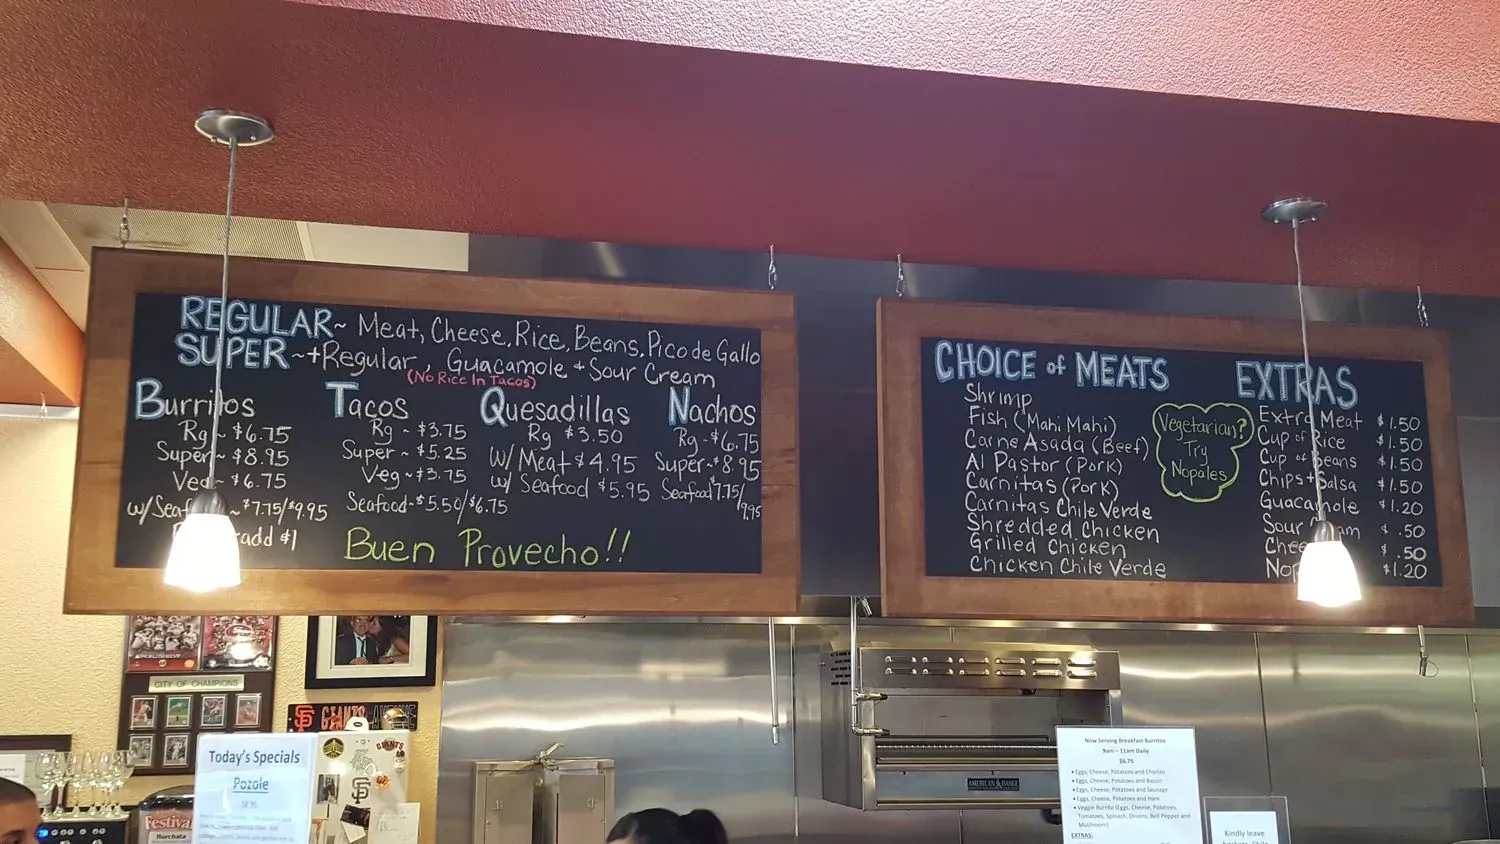 REGULAR~ Meat, Cheese, Rice, Beans, Pico de Gallo
SUPER ~+Regular, Guacamole + Sour Cream
(No Rice In Tacos)
Burritos
Rg ~ $6.75
Super ~ $8.95
Veg ~ $6.75
w/ Seaf ~ $7.75/$9.95
add $1
Tacos
Rg ~ $3.75
Super ~ $5.25
Veg ~ $3.75
Seafood ~ $5.50/$6.75
Quesadillas
Rg $3.50
w/ Meat $4.95
w/ Seafood $5.95
Nachos
Rg ~ $6.75
Super ~ $8.95
Seafood $7.75/
9.95
Buen Provecho!!
CHOICE of MEATS
Shrimp
Fish (Mahi Mahi)
Carne Asada (Beef)
Al Pastor (Pork)
Carnitas (Pork)
Carnitas Chile Verde
Shredded Chicken
Grilled Chicken
Chicken Chile Verde
Vegetarian?
Try
Nopales
EXTRAS
Extra Meat $1.50
Cup of Rice $1.50
Cup of Beans $1.50
Chips + Salsa $1.50
Guacamole $1.20
Sour Cream $.50
Chee $.50
Nop $1.20
CITY OF CHAMPIONS
SF GIANTS
GIANTS
SF
Today's Specials
Pozole
Festival
Horchata
AMERICAN RANGE
Now Serving Breakfast Burritos
9am – 11am Daily
$6.75
• Eggs, Cheese, Potatoes and Chorizo
• Eggs, Cheese, Potatoes and Bacon
• Eggs, Cheese, Potatoes and Sausage
• Eggs, Cheese, Potatoes and Ham
• Veggie Burrito (Eggs, Cheese, Potatoes,
Tomatoes, Spinach, Onions, Bell Pepper and
Mushroom)
EXTRAS:
Kindly leave